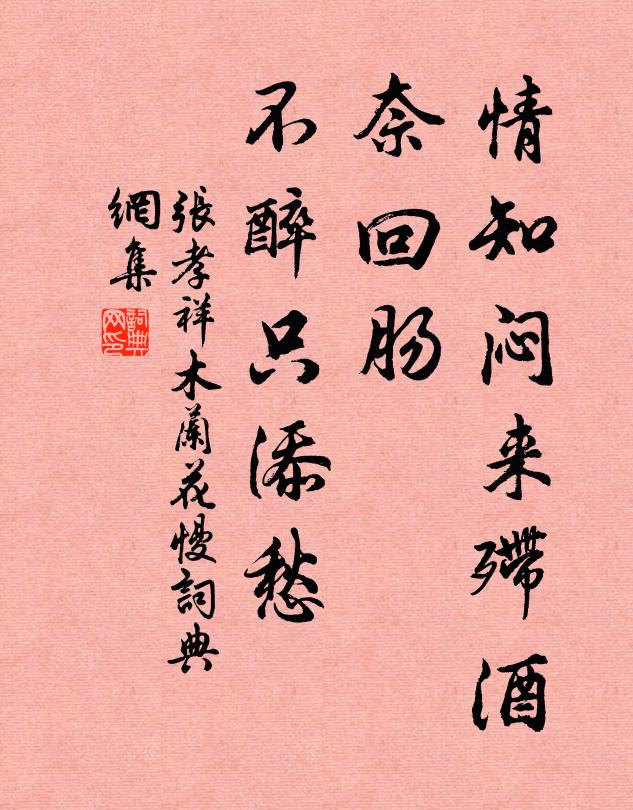 情知闷来殢酒
奈回肠
不醉只添愁
張孝祥木蘭花慢詞典
網集
詞典
网印